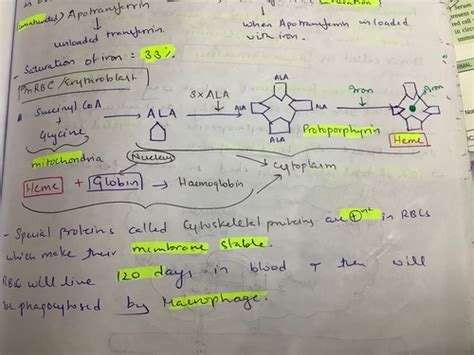 (unsaturated) Apotransferrin
when Apotransferrin is loaded
with iron.
unloaded transferrin
- Saturation of iron = 33%.
nRBC/Erythroblast
Succinyl CoA
+
Glycine
ALA
3xALA
ALA
ALA
ALA
ALA
Iron
Iron
Protoporphyrin
Heme
mitochondria
Nucleus
Cytoplasm
Heme + Globin → Haemoglobin
- Special proteins called Cytoskeletal proteins are in RBCs
which make their membrane stable.
RBCs will live 120 days in blood & then will
be phagocytosed by Macrophage.